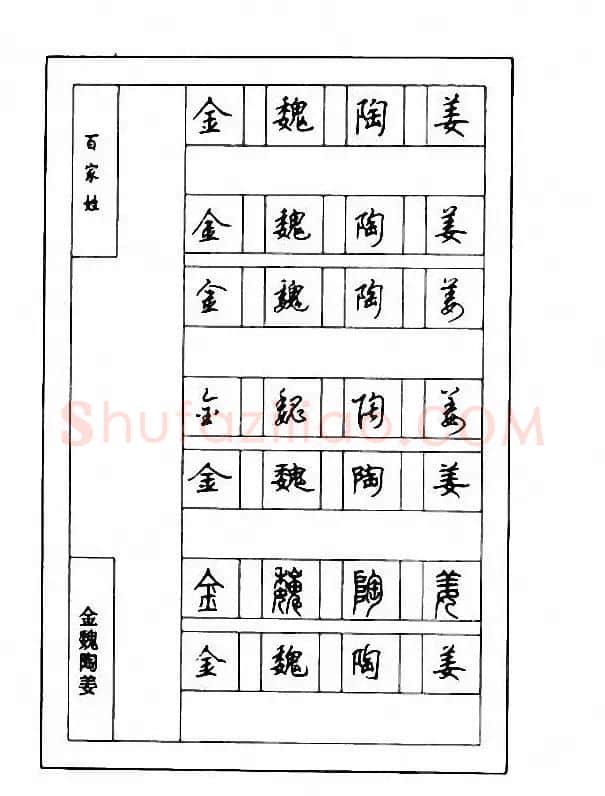 百家姓
金魏陶姜
金 魏 陶 姜
金 魏 陶 姜
金 魏 陶 姜
金 魏 陶 姜
金 魏 陶 姜
金 魏 陶 姜
金 魏 陶 姜
Shufaziliao.COM